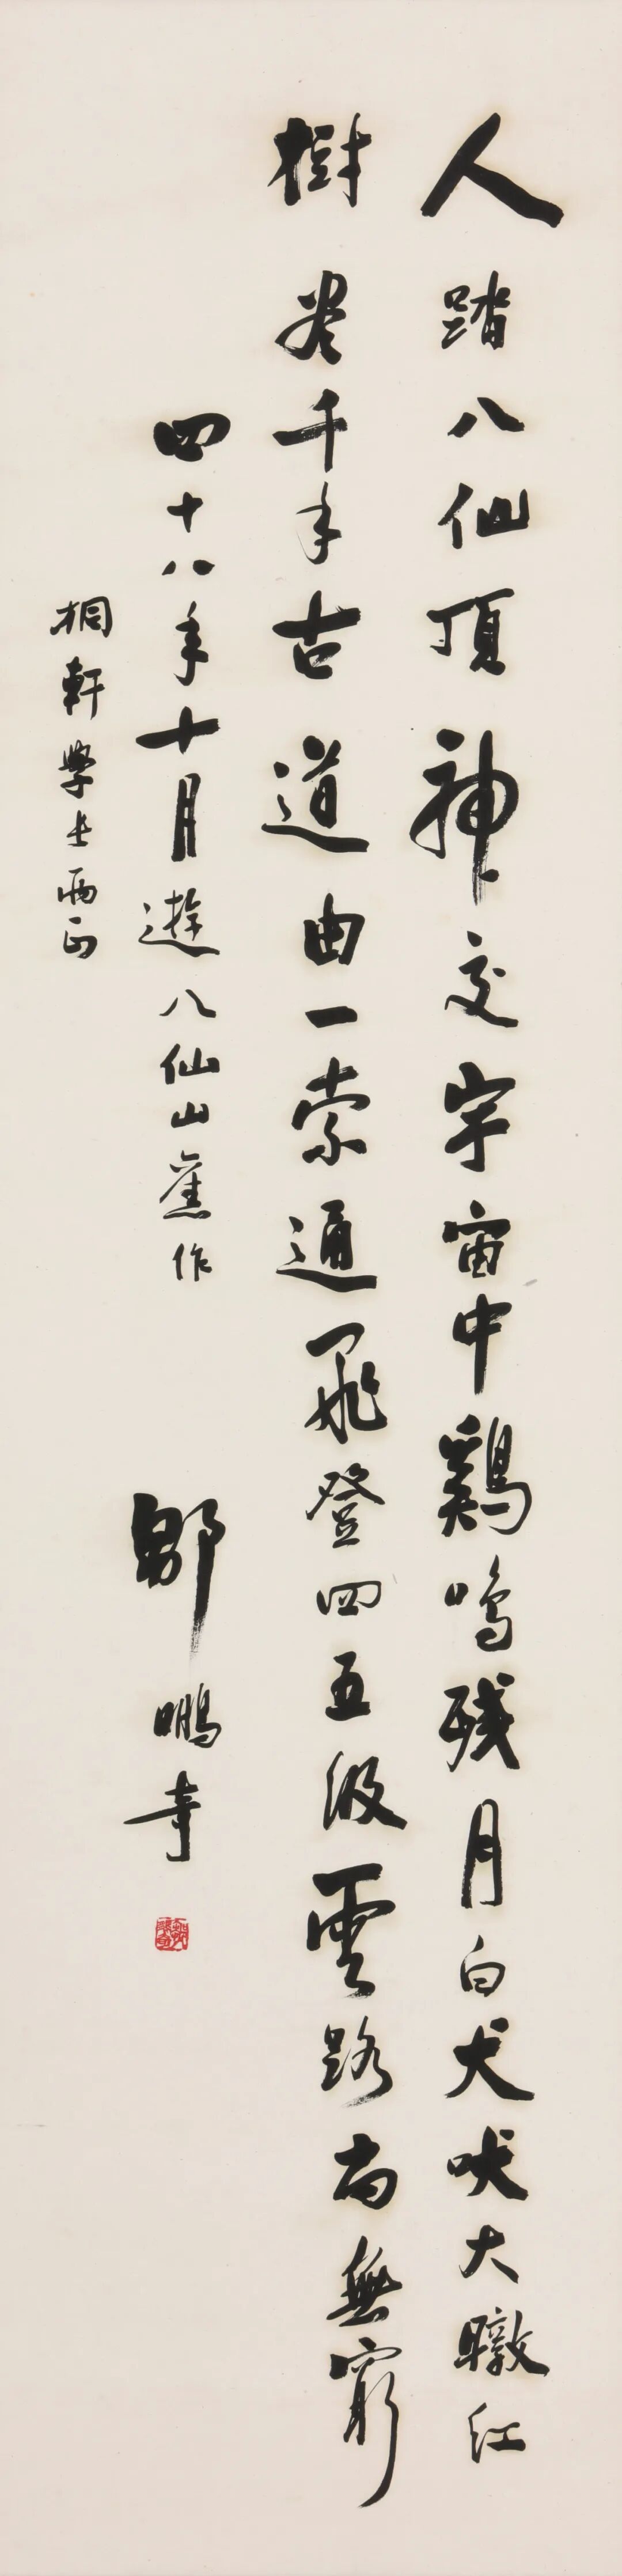 人踏八仙頂神交宇宙中鷄鳴残月白犬吠大暾红
樹老千年古道由一索通飛登四五級雲路尚無窮
四十八年十月遊八仙山舊作
鄒鵬奇
桐軒學長兩正